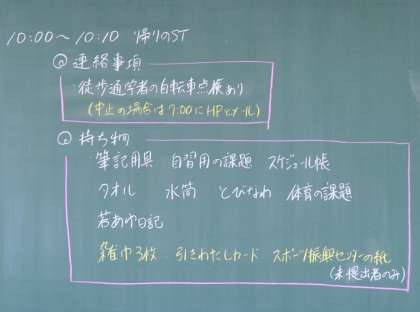 10:00～10:10 帰りのST
◎連絡事項
徒歩通学者の自転車点検あり
(中止の場合は7:00にHPとメール)
◎持ち物
筆記用具 自習用の課題 スケジュール帳
タオル 水筒 とびなわ 体育の課題
若あゆ日記
雑巾3枚 引きわたしカード スポーツ振興センターの紙
(未提出者のみ)